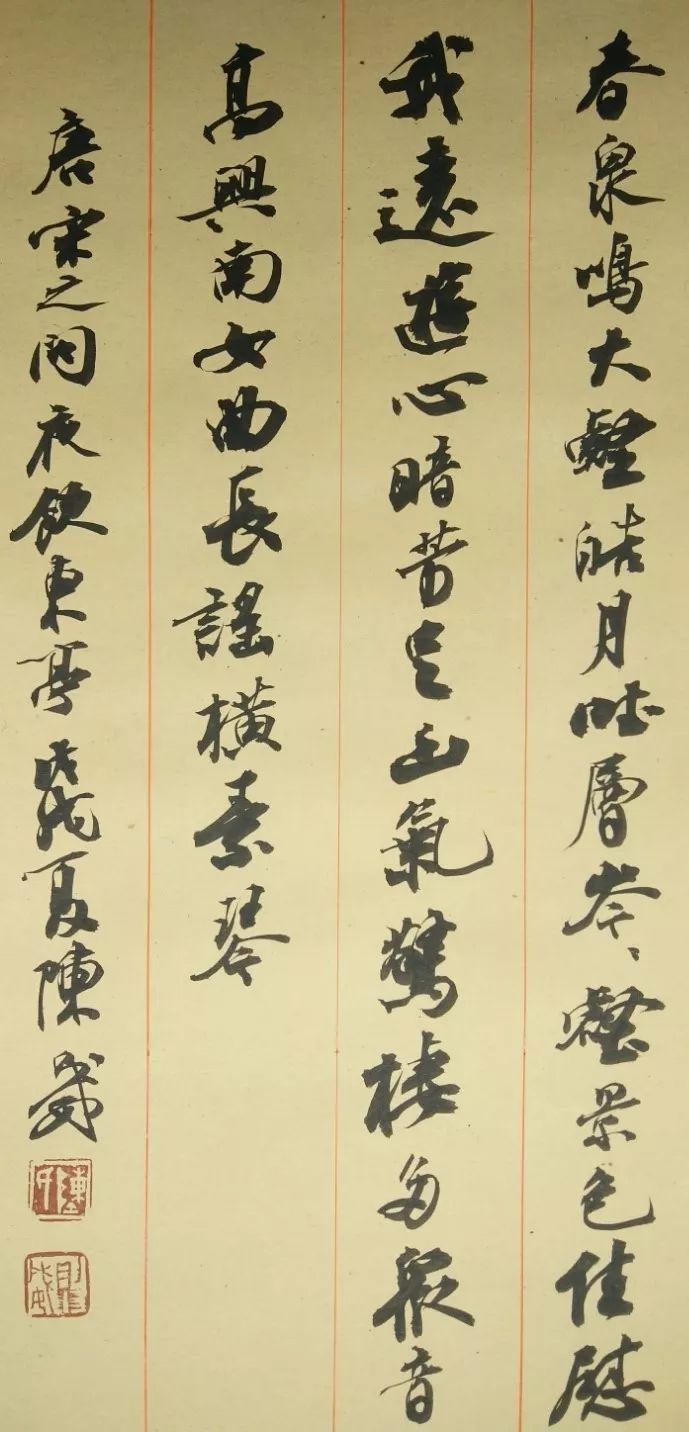 春泉鳴大壑皓月吐層岑、壑景色佳慰
我遠遊心暗芳足幽氣驚棲多衆音
高興南山曲長謠橫素琴
唐宋之問夜飲東亭戊戌夏陳